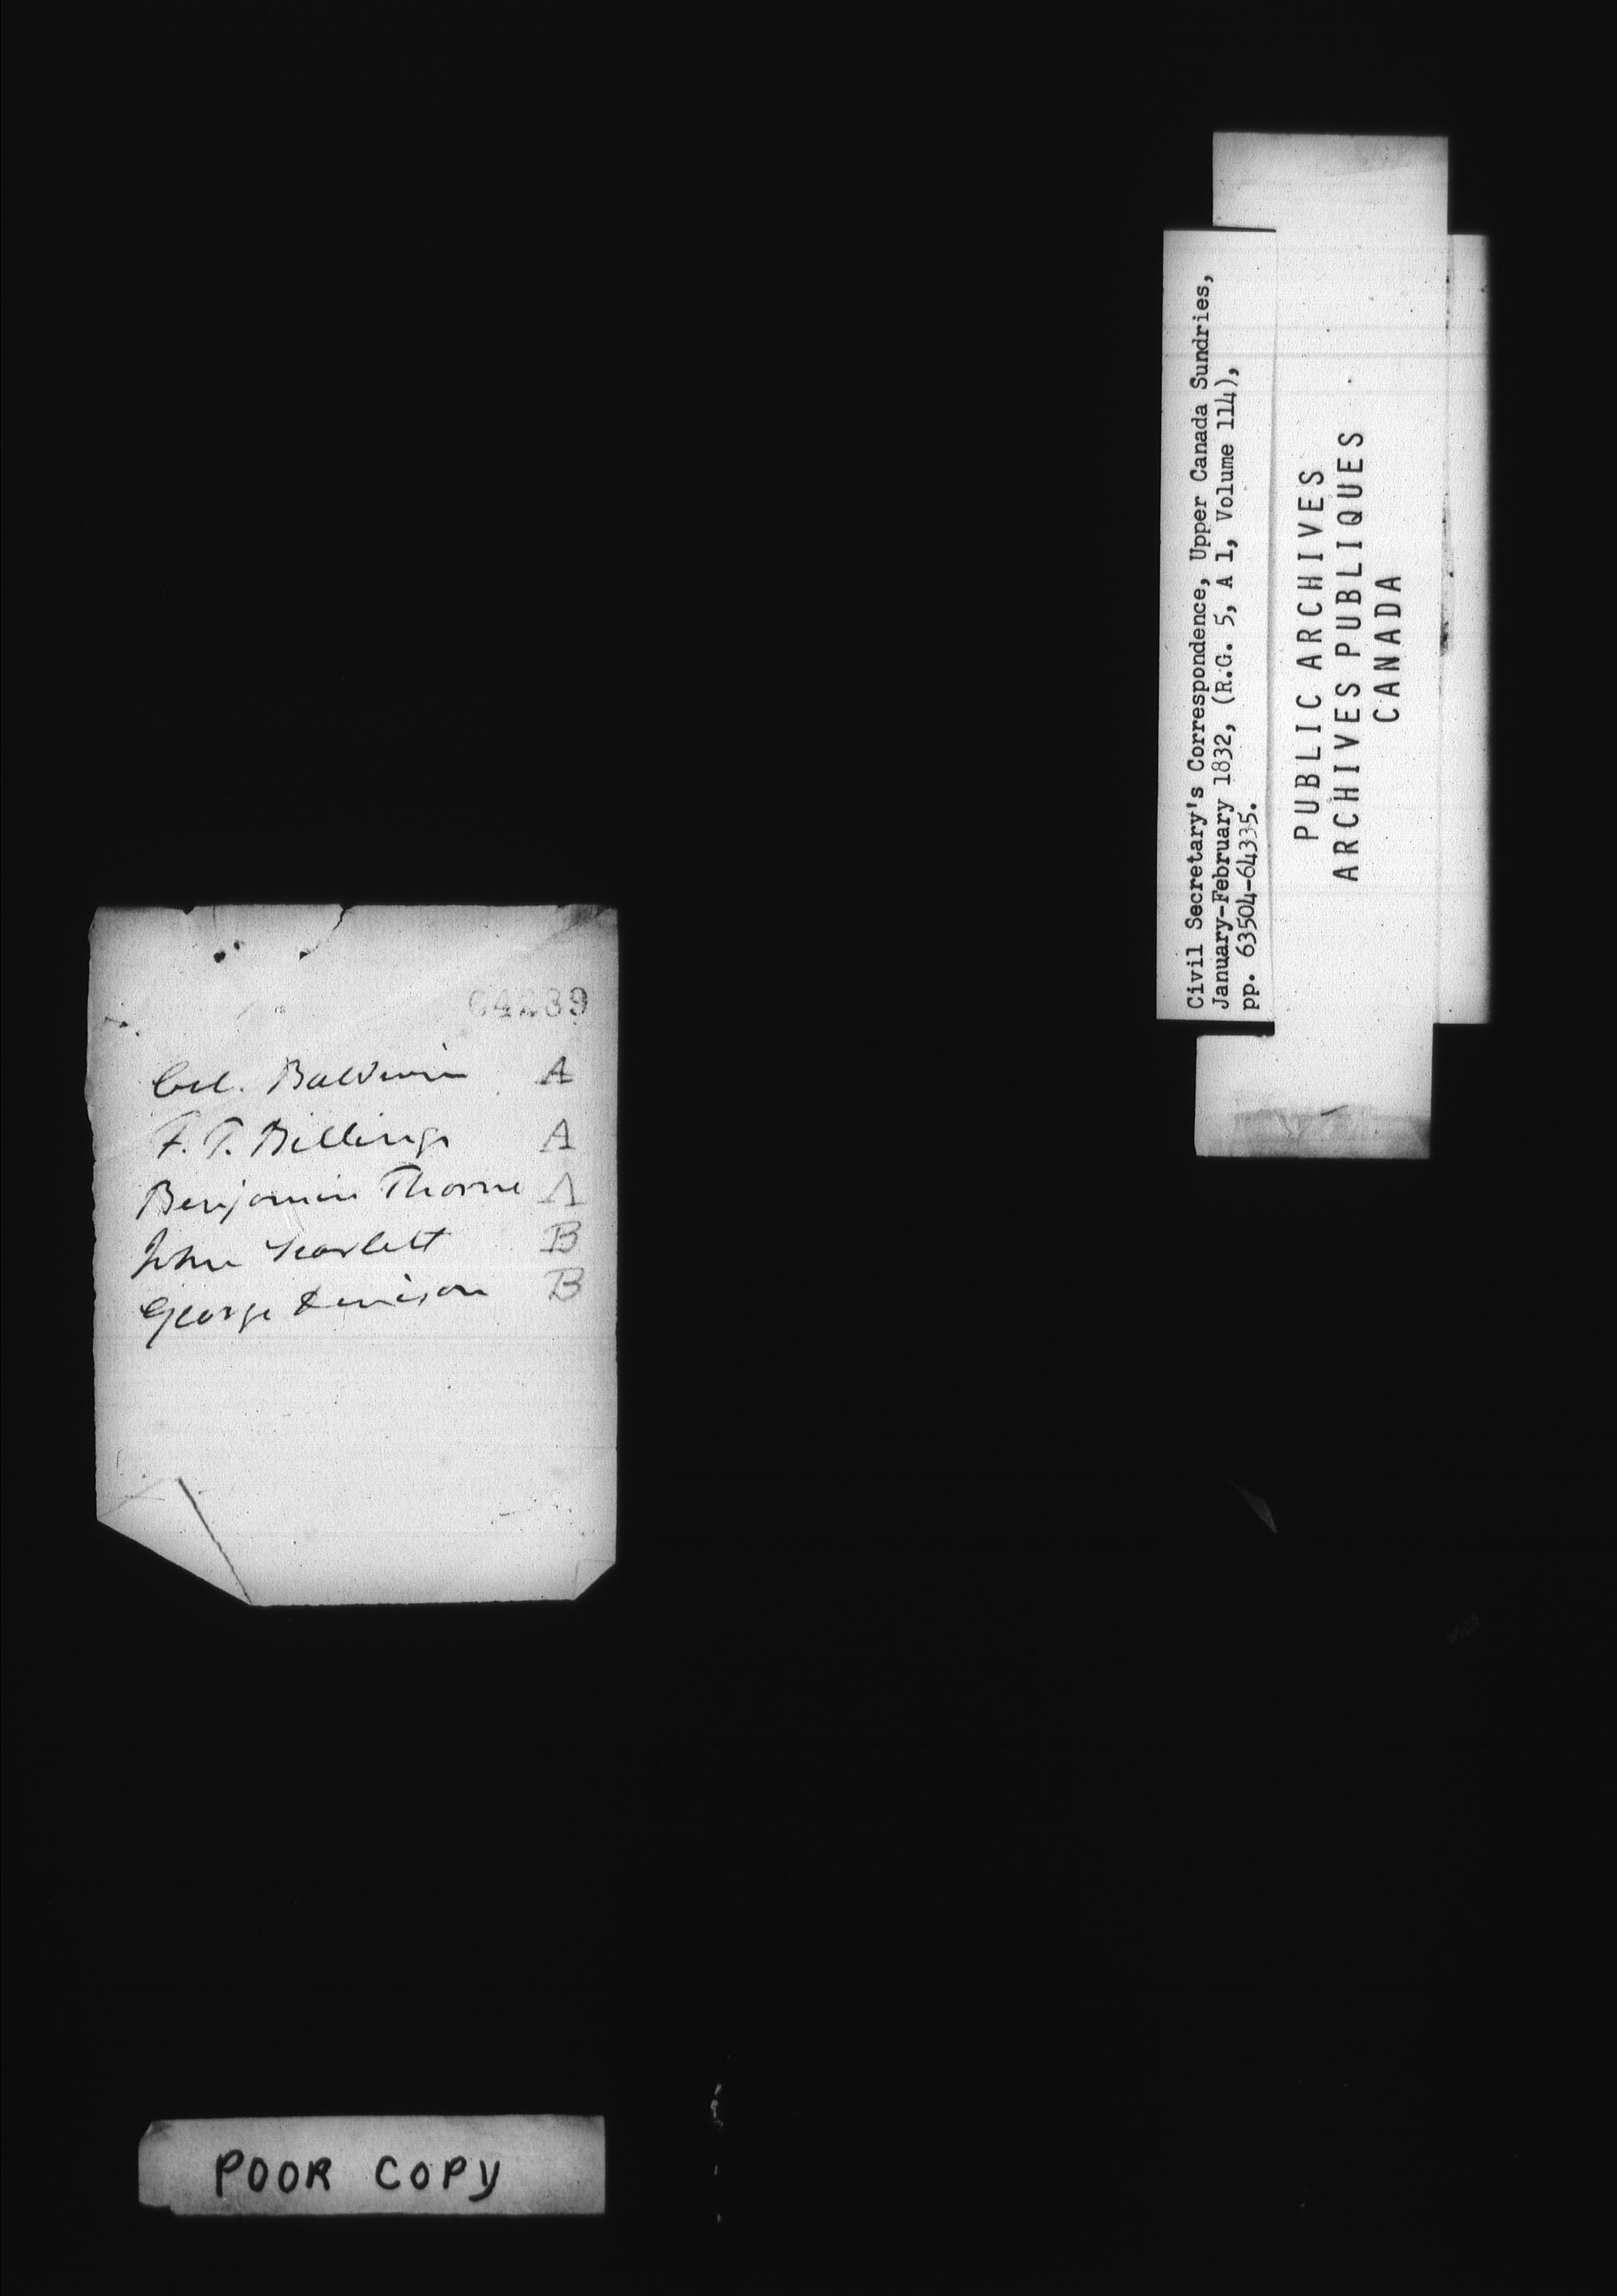 Civil Secretary's Correspondence, Upper Canada Sundries,
January-February 1832, (R.G. 5, A 1, Volume 114),
pp. 63504-64335.
PUBLIC ARCHIVES
ARCHIVES PUBLIQUES
CANADA
64289
Col. Baldwin A
F. T. Billings A
Benjamin Thorne A
John Scarlett B
George Denison B
POOR COPY